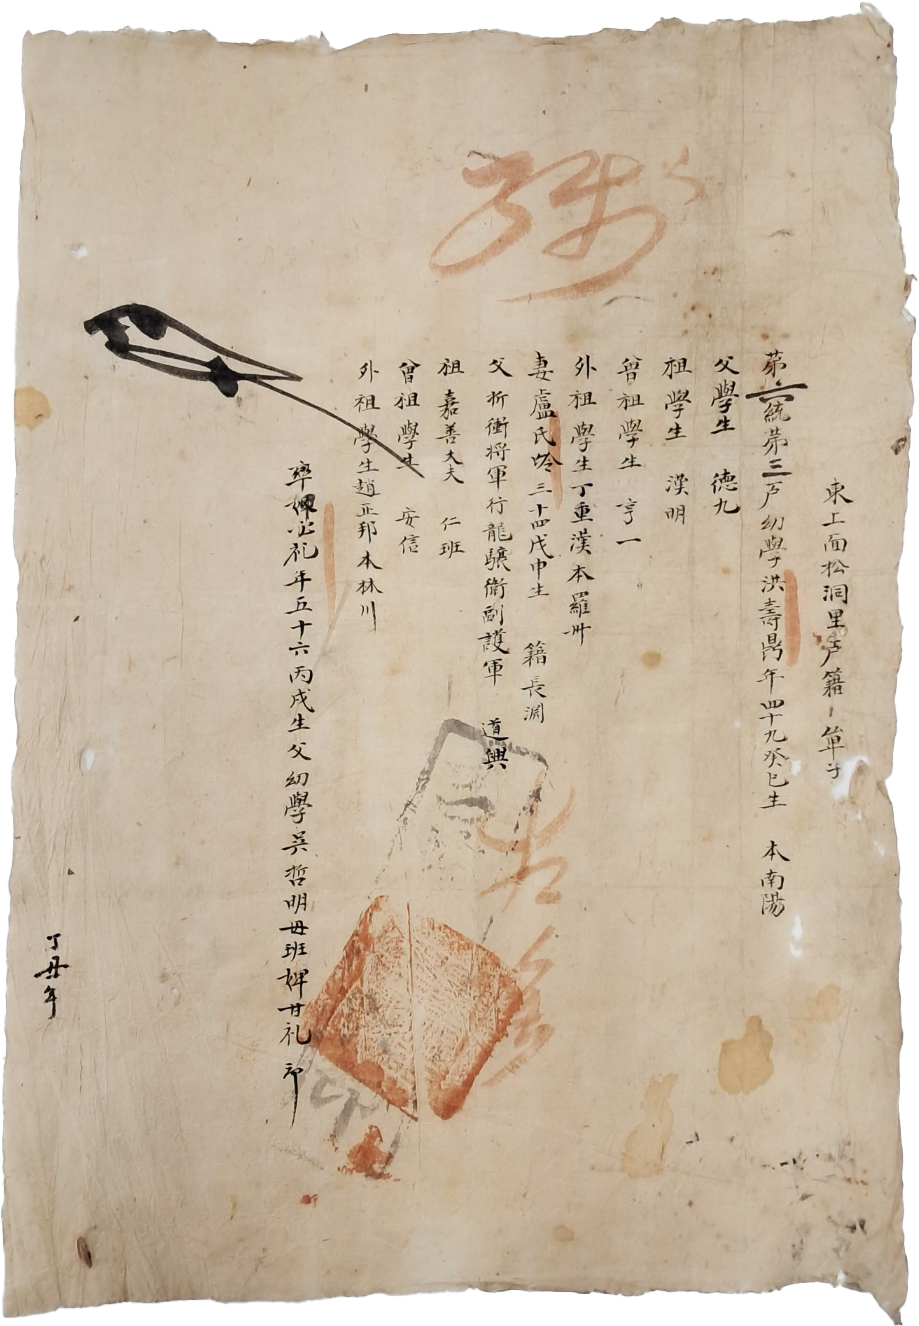 東上面松洞里戶籍單子
第六統第三戶幼學洪壽鼎年四十九癸巳生 本南陽
父學生 德九
祖學生 漢明
曾祖學生 亨一
外祖學生丁重漢本羅州
妻盧氏齡三十四戊申生 籍長淵
父折衝將軍行龍驤衛副護軍 道興
祖嘉善大夫 仁班
曾祖學生 安信
外祖學生趙正邦本林川
率婢必礼年五十六丙戌生父幼學吳哲明母班婢廿礼 印
丁丑年